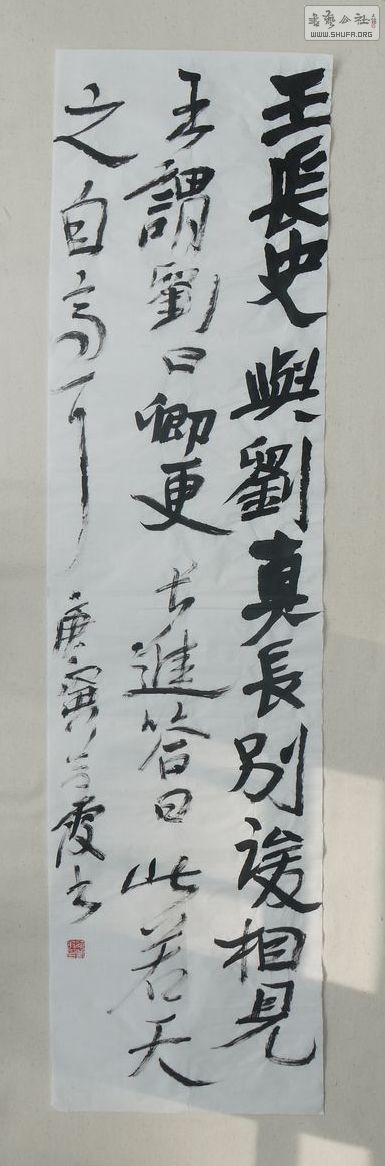 王長史與劉真長別後相見
王謂劉曰卿更長進答曰此若天
之自高耳 庚寅 霞书
書藝公社
WWW.SHUFA.ORG